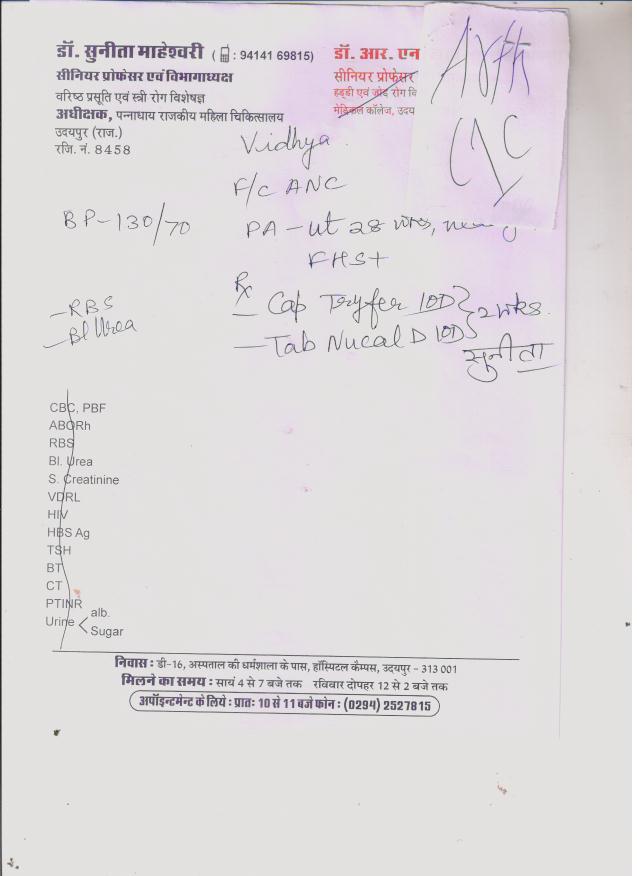 डॉ. सुनीता माहेश्वरी ( : 94141 69815)
सीनियर प्रोफेसर एवं विभागाध्यक्ष
वरिष्ठ प्रसूति एवं स्त्री रोग विशेषज्ञ
अधीक्षक, पन्नाधाय राजकीय महिला चिकित्सालय
उदयपुर (राज.)
रजि. नं. 8458
डॉ. आर. एन
सीनियर प्रोफेसर
हड्डी एवं जोड़ रोग वि
मेडिकल कॉलेज, उदय
Vidhya
F/c ANC
BP-130/70
PA - ut 28 wks,
FHS+
Rx
- RBS
- Bl Urea
- Cap Tryfer 10D } 2 wks.
- Tab Nucal D 10D
सुनीता
CBC, PBF
ABORh
RBS
Bl. Urea
S. Creatinine
VDRL
HIV
HBS Ag
TSH
BT
CT
PTINR
Urine < alb.
Sugar
निवास : डी-16, अस्पताल की धर्मशाला के पास, हॉस्पिटल कैम्पस, उदयपुर - 313 001
मिलने का समय : सायं 4 से 7 बजे तक रविवार दोपहर 12 से 2 बजे तक
अपॉइन्टमेन्ट के लिये : प्रातः 10 से 11 बजे फोन : (0294) 2527815